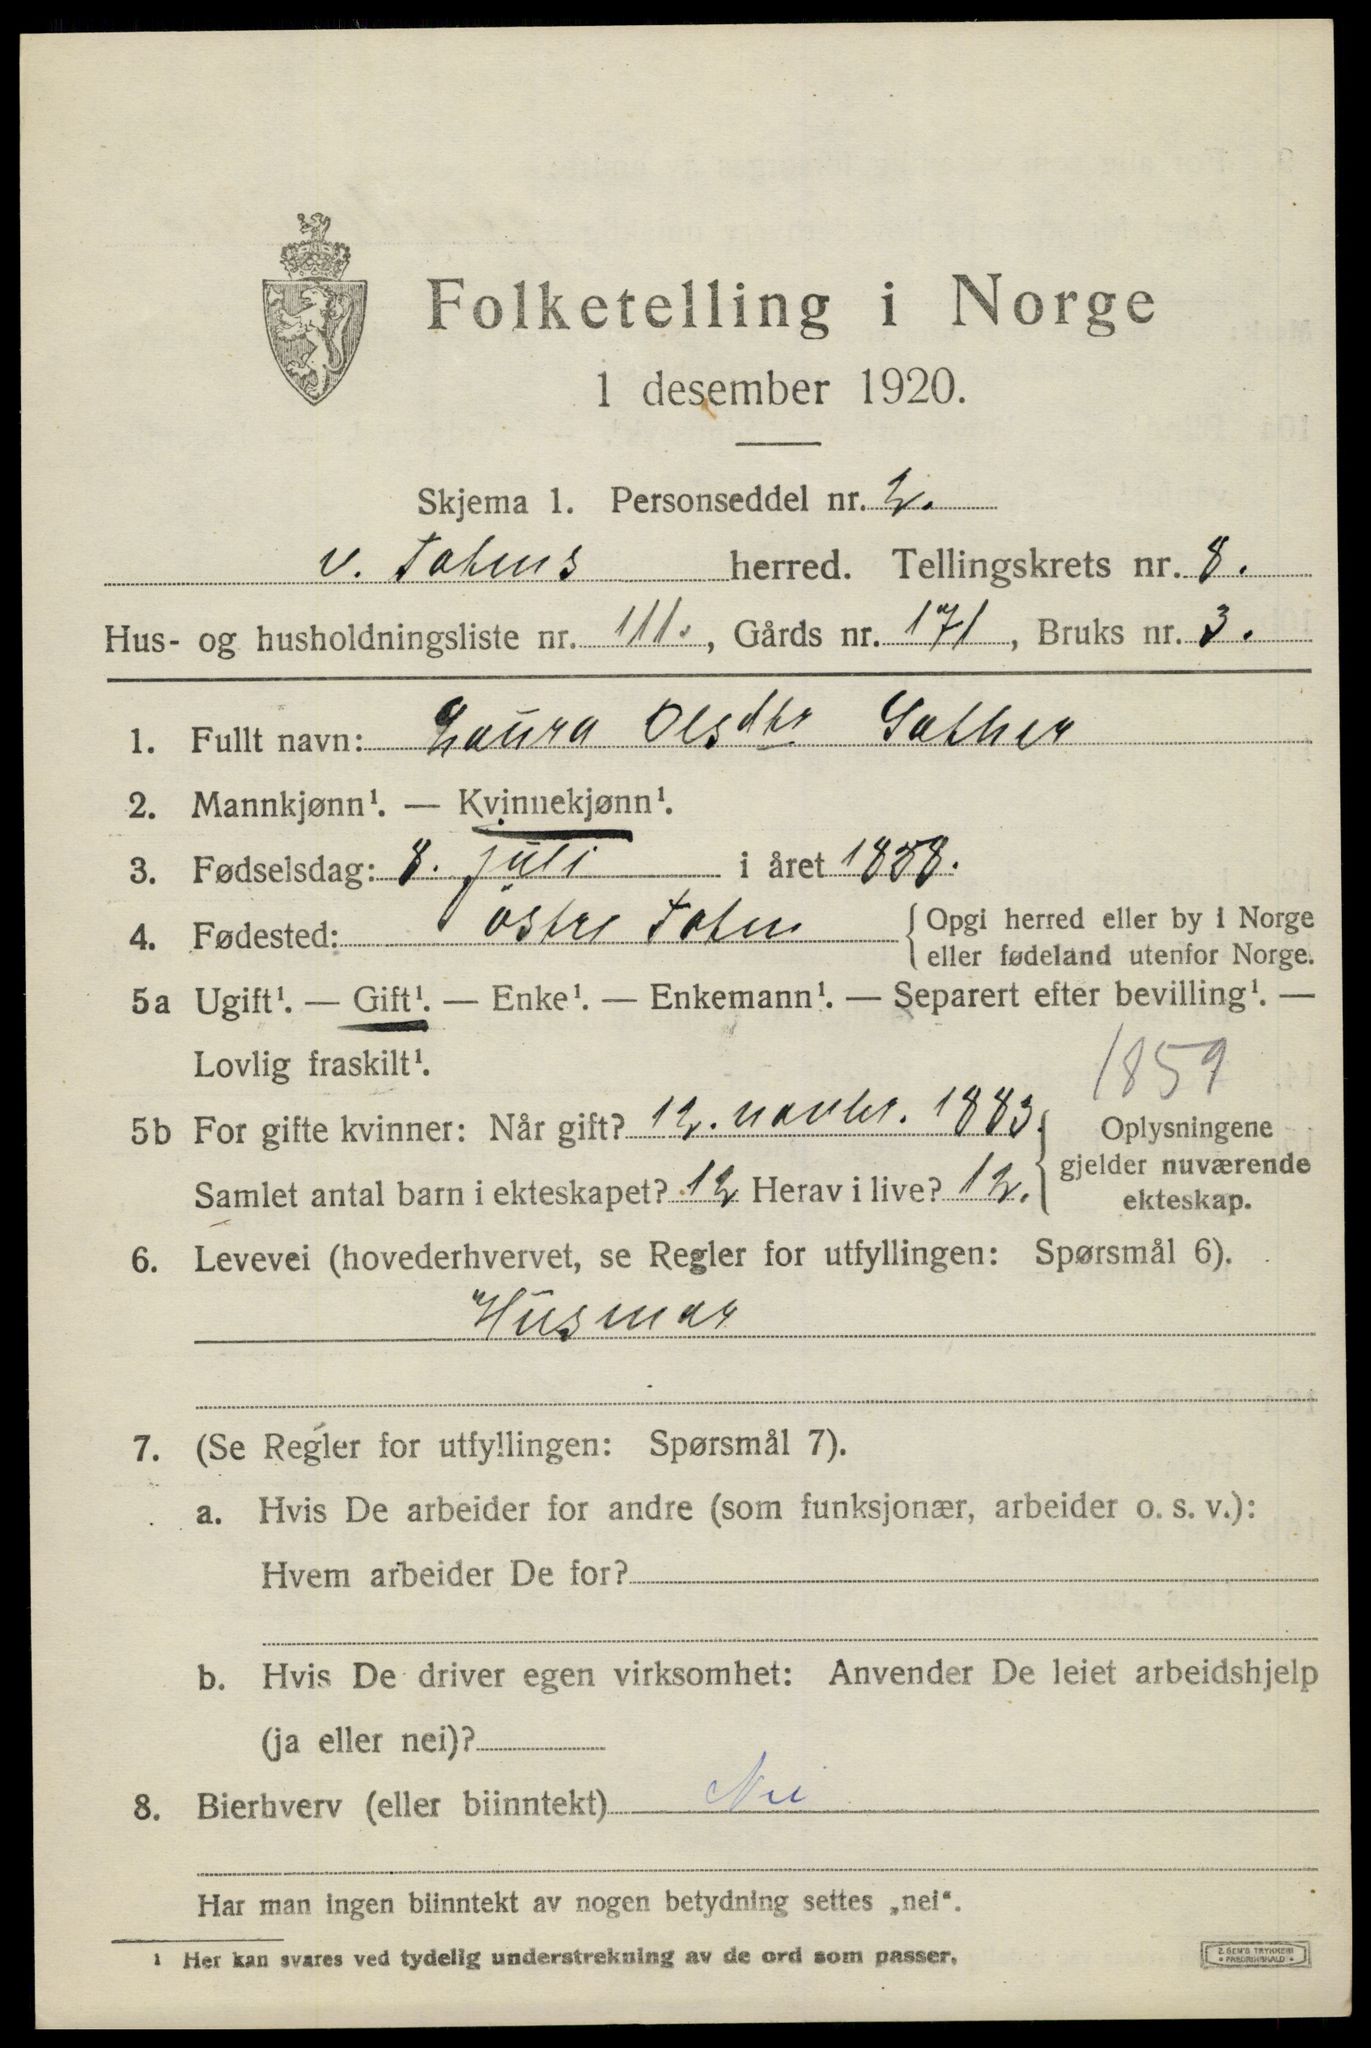 Folketelling i Norge
1 desember 1920.
Skjema 1. Personseddel nr. 2.
v. Totens herred. Tellingskrets nr. 8.
Hus- og husholdningsliste nr. 111., Gårds nr. 171, Bruks nr. 3.
1. Fullt navn: Laura Olsdtr Sather
2. Mannkjønn¹. — Kvinnekjønn¹.
3. Fødselsdag: 8. juli i året 1858.
4. Fødested: östre Toten { Opgi herred eller by i Norge
eller fødeland utenfor Norge.
5a Ugift¹. — Gift¹. — Enke¹. — Enkemann¹. — Separert efter bevilling¹. —
Lovlig fraskilt¹.
1859
5b For gifte kvinner: Når gift? 12. novbr. 1883.
Samlet antal barn i ekteskapet? 12 Herav i live? 12.
Oplysningene
gjelder nuværende
ekteskap.
6. Levevei (hovederhvervet, se Regler for utfyllingen: Spørsmål 6).
Husmor
7. (Se Regler for utfyllingen: Spørsmål 7).
a. Hvis De arbeider for andre (som funksjonær, arbeider o. s. v.):
Hvem arbeider De for?
b. Hvis De driver egen virksomhet: Anvender De leiet arbeidshjelp
(ja eller nei)?
8. Bierhverv (eller biinntekt) Nei
Har man ingen biinntekt av nogen betydning settes „nei“.
¹ Her kan svares ved tydelig understrekning av de ord som passer.